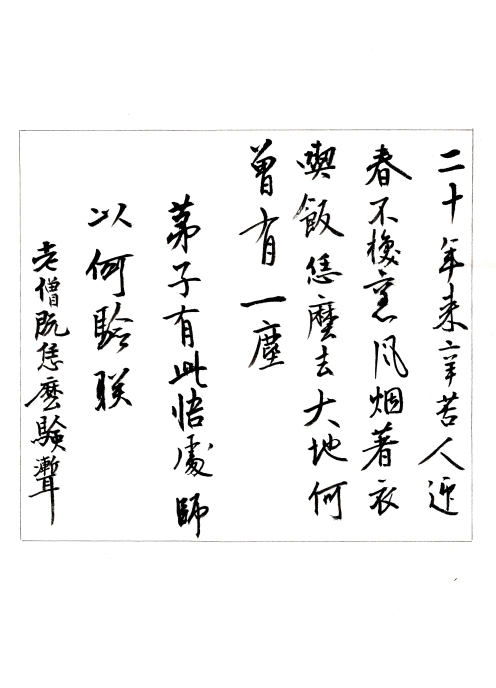 二十年来辛苦人迎
春不換舊風烟著衣
喫飯恁麼去大地何
曽有一塵
弟子有此悟處師
以何験朕
老僧既恁麼験聻